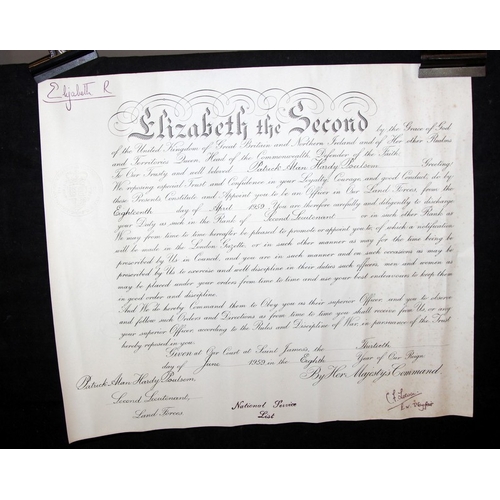 Elizabeth R
Elizabeth the Second by the Grace of God
of the United Kingdom of Great Britain and Northern Ireland and of Her other Realms
and Territories Queen, Head of the Commonwealth, Defender of the Faith.
To Our Trusty and well beloved Patrick Alan Hardy Poulsom Greeting
We reposing especial Trust and Confidence in your Loyalty, Courage, and good Conduct, do by
these Presents Constitute and Appoint you to be an Officer in Our Land Forces from the
Eighteenth day of April 1959 You are therefore carefully and diligently to discharge
your Duty as such in the Rank of Second Lieutenant or in such other Rank as
We may from time to time hereafter be pleased to promote or appoint you to, of which a notification
will be made in the London Gazette, or in such other manner as may for the time being be
prescribed by Us in Council, and you are in such manner and on such occasions as may be
prescribed by Us to exercise and well discipline in their duties such officers, men and women as
may be placed under your orders from time to time and use your best endeavours to keep them
in good order and discipline.
And We do hereby Command them to Obey you as their superior Officer and you to observe
and follow such Orders and Directions as from time to time you shall receive from Us, or any
your superior Officer, according to the Rules and Discipline of War, in pursuance of the Trust
hereby reposed in you.
Given at Our Court at Saint James's, the Thirtieth
day of June 1959 in the Eighth Year of Our Reign
By Her Majesty's Command
Patrick Alan Hardy Poulsom
Second Lieutenant,
Land Forces
National Service
List